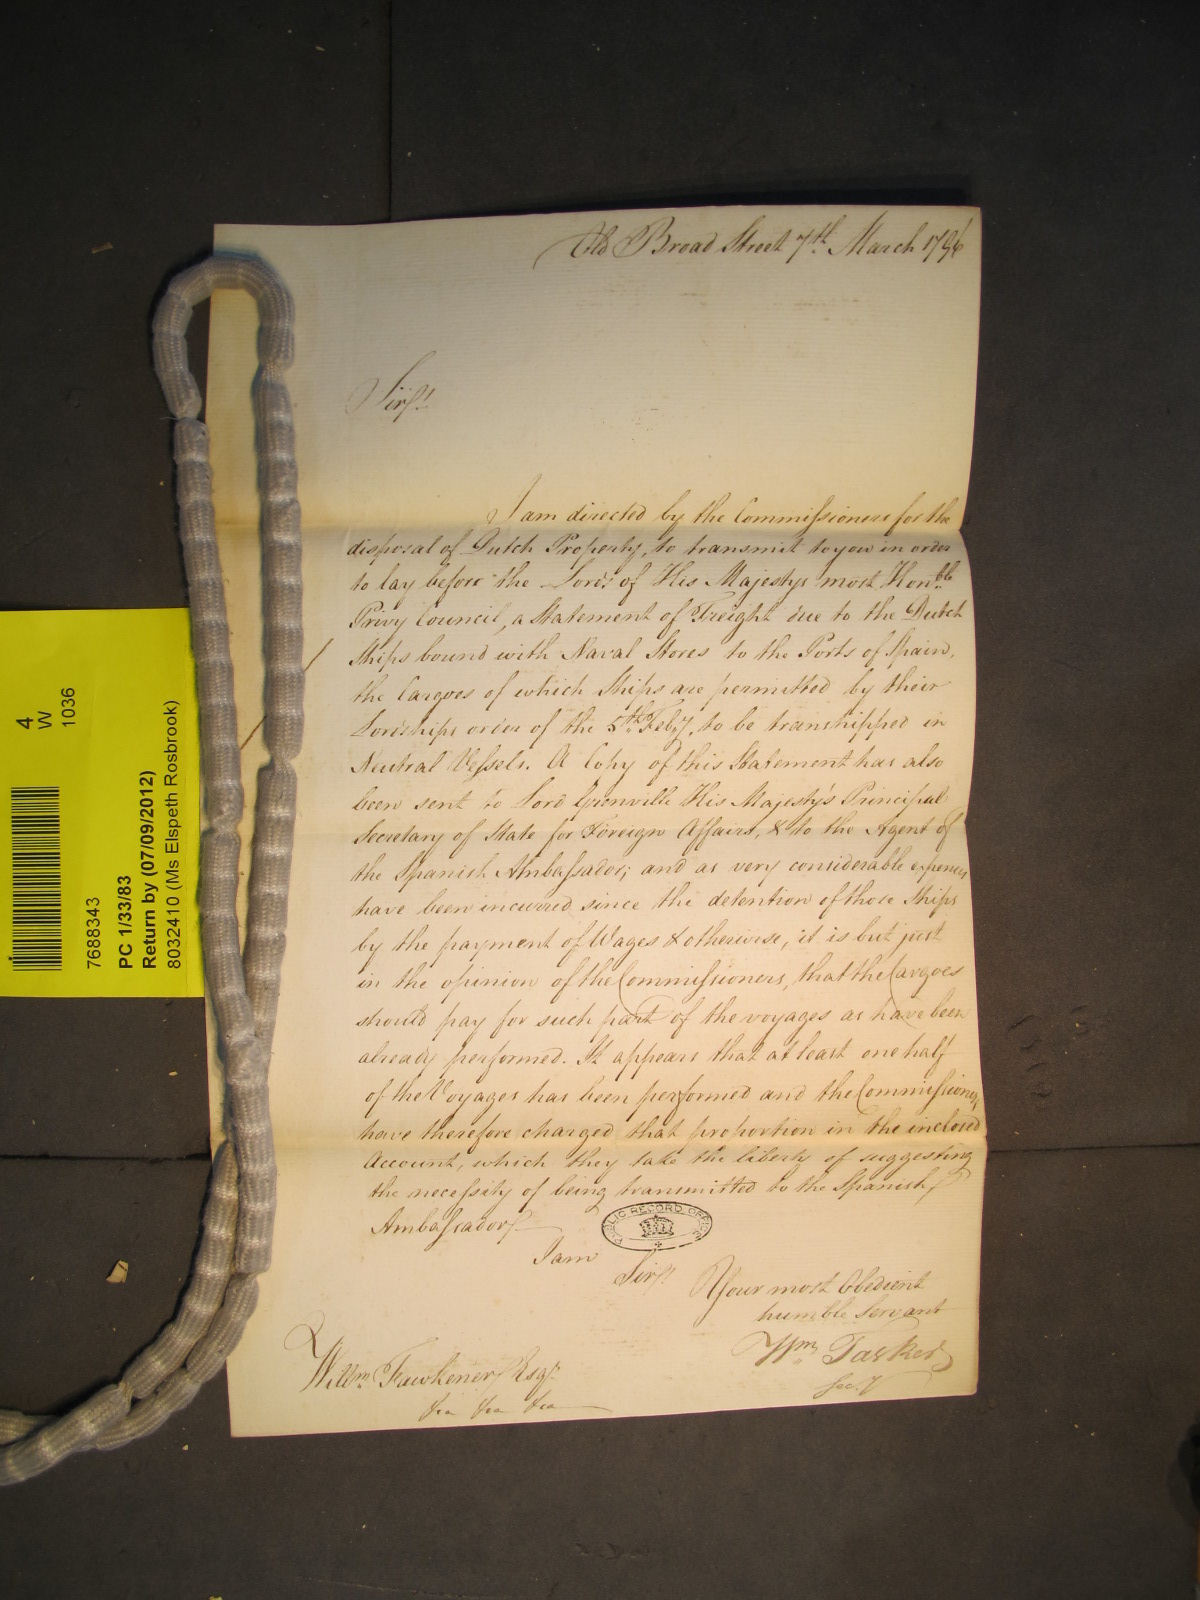 Old Broad Street 7th March 1796
Sir,
I am directed by the Commissioners for the
disposal of Dutch Property, to transmit to you in order
to lay before the Lords of His Majestys most Honble
Privy Council, a Statement of Freight due to the Dutch
Ships bound with Naval Stores to the Ports of Spain,
the Cargoes of which Ships are permitted by their
Lordships order of the 5th Feby, to be transhipped in
Neutral Vessels. A Copy of this Statement has also
been sent to Lord Grenville His Majesty's Principal
Secretary of State for Foreign Affairs, & to the Agent of
the Spanish Ambassador; and as very considerable expences
have been incurred since the detention of those Ships
by the payment of Wages & otherwise, it is but just
in the opinion of the Commissioners, that the Cargoes
should pay for such part of the voyages as have been
already performed. It appears that at least one half
of the Voyages has been performed and the Commissioners
have therefore charged that proportion in the inclosed
Account, which they take the liberty of suggesting
the necessity of being transmitted to the Spanish
Ambassador
I am
Sir
Your most Obedient
humble Servant
Wm Tasker
Secy
Willm Fawkener Esqr
&ca &ca &ca
PUBLIC RECORD OFFICE
4
W
1036
7688343
PC 1/33/83
Return by (07/09/2012)
8032410 (Ms Elspeth Rosbrook)